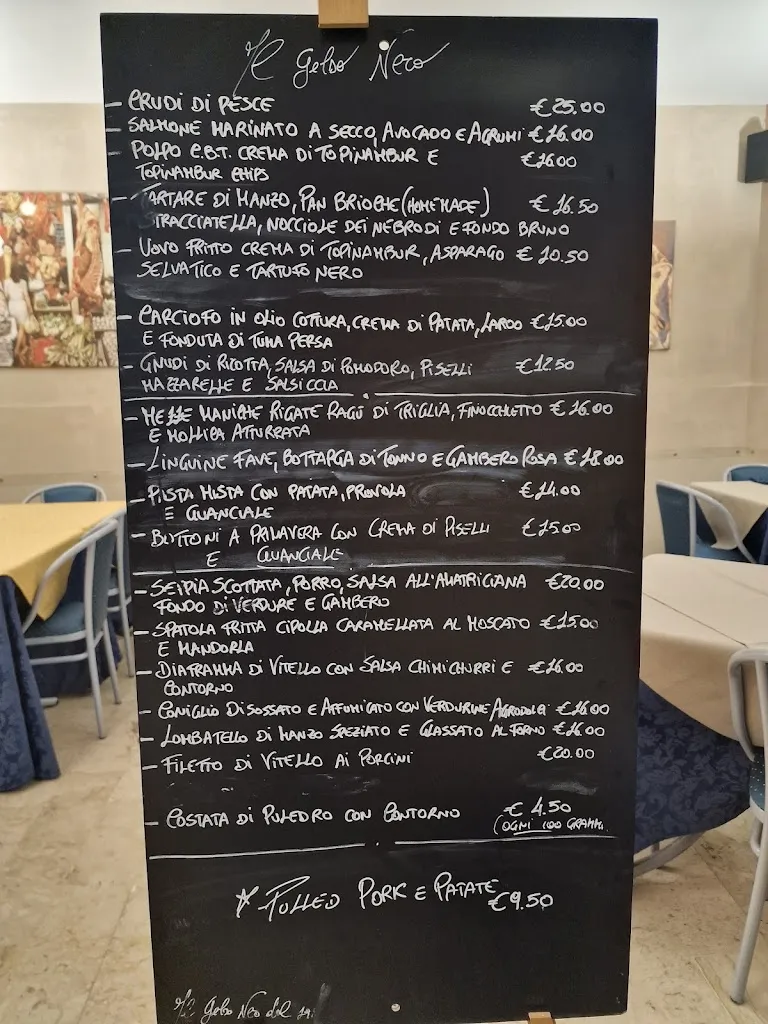 Il Gelso Nero
- CRUDI DI PESCE €25.00
- SALMONE MARINATO A SECCO, AVOCADO E AGRUMI €16.00
- POLPO C.B.T. CREMA DI TOPINAMBUR E €16.00
TOPINAMBUR CHIPS
- TARTARE DI MANZO, PAN BRIOCHE (HOMEMADE) €16.50
STRACCIATELLA, NOCCIOLE DEI NEBRODI E FONDO BRUNO
- UOVO FRITTO CREMA DI TOPINAMBUR, ASPARAGO €10.50
SELVATICO E TARTUFO NERO
- CARCIOFO IN OLIO COTTURA, CREMA DI PATATA, LARDO €15.00
E FONDUTA DI TUMA PERSA
- GNUDI DI RICOTTA, SALSA DI POMODORO, PISELLI €12.50
MAZZARELLE E SALSICCIA
- MEZZE MANICHE RIGATE RAGÙ DI TRIGLIA, FINOCCHIETTO €16.00
E MOLLICA ATTURRATA
- LINGUINE FAVE, BOTTARGA DI TONNO E GAMBERO ROSA €18.00
- PASTA MISTA CON PATATA, PROVOLA €14.00
E GUANCIALE
- BOTTONI A PRIMAVERA CON CREMA DI PISELLI €15.00
E GUANCIALE
- SEPPIA SCOTTATA, PORRO, SALSA ALL'AMATRICIANA €20.00
FONDO DI VERDURE E GAMBERO
- SPATOLA FRITTA CIPOLLA CARAMELLATA AL MOSCATO €15.00
E MANDORLA
- DIAFRAMMA DI VITELLO CON SALSA CHIMICHURRI E €16.00
CONTORNO
- CONIGLIO DISOSSATO E AFFUMICATO CON VERDURINE AGRODOLCI €16.00
- LOMBATELLO DI MANZO SPEZIATO E GLASSATO AL FORNO €16.00
- FILETTO DI VITELLO AI PORCINI €20.00
- COSTATA DI PULEDRO CON CONTORNO €4.50
(OGNI 100 GRAMMI
* PULLED PORK E PATATE €9.50
Il Gelso Nero dal